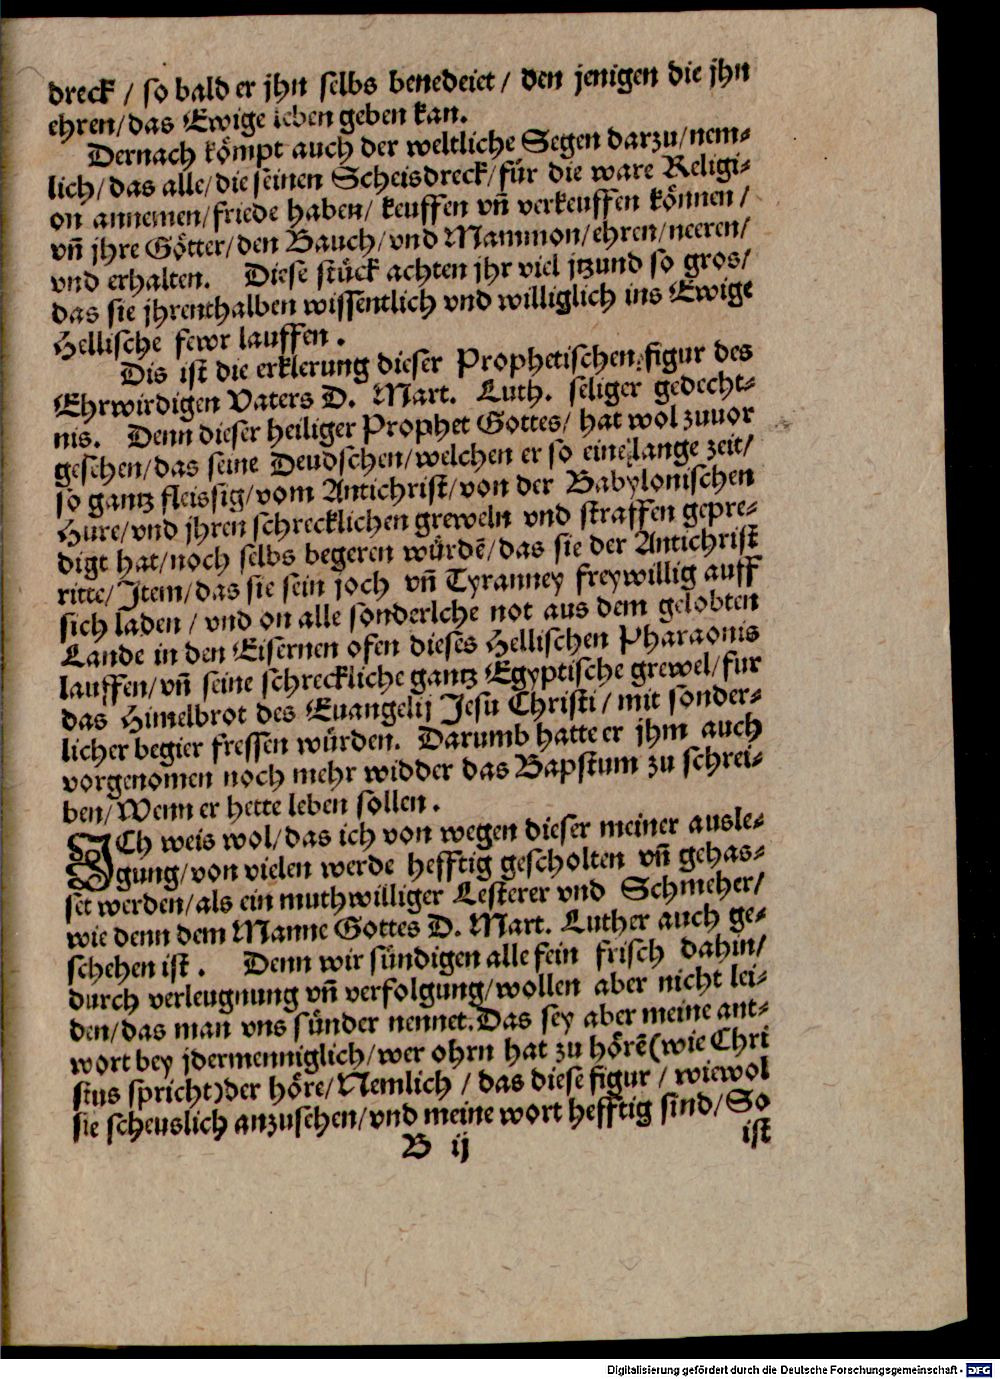 dreck / so bald er jhn selbs benedeiet / den jenigen die jhn
ehren/das Ewige leben geben kan.
Dernach kömpt auch der weltliche Segen darzu/nem⸗
lich/das alle/die seinen Scheisdreck/für die ware Religi⸗
on annemen/friede haben/ keuffen vñ verkeuffen können /
vñ jhre Götter/den Bauch/vnd Mammon/ehren/neeren/
vnd erhalten. Diese stück achten jhr viel jtzund so gros/
das sie jhrenthalben wissentlich vnd williglich ins Ewige
Hellische fewr lauffen .
Dis ist die erklerung dieser Prophetischen figur des
Ehrwirdigen Vaters D. Mart. Luth. seliger gedecht⸗
nis. Denn dieser heiliger Prophet Gottes/ hat wol zuuor
gesehen/das seine Deudschen/welchen er so eine lange zeit/
so gantz fleissig/vom Antichrist/von der Babylonischen
Hure/vnd jhren schrecklichen greweln vnd straffen gepre⸗
digt hat/noch selbs begeren würdē/das sie der Antichrist
ritte/Item/das sie sein joch vñ Tyranney freywillig auff
sich laden / vnd on alle sonderlche not aus dem gelobten
Lande in den Eisernen ofen dieses Hellischen Pharaonis
lauffen/vñ seine schreckliche gantz Egyptische grewel/fur
das Himelbrot des Euangelij Jesu Christi / mit sonder⸗
licher begier fressen würden. Darumb hatte er jhm auch
vorgenomen noch mehr widder das Bapstum zu schrei⸗
ben/Wenn er hette leben sollen .
ICh weis wol/das ich von wegen dieser meiner ausle⸗
gung/von vielen werde hefftig gescholten vñ gehas⸗
set werden/als ein muthwilliger Lesterer vnd Schmeher/
wie denn dem Manne Gottes D. Mart. Luther auch ge⸗
schehen ist . Denn wir sündigen alle fein frisch dahin/
durch verleugnung vñ verfolgung/wollen aber nicht lei⸗
den/das man vns sünder nennet. Das sey aber meine ant⸗
wort bey jdermenniglich/wer ohrn hat zu hörē(wie Chri
stus spricht)der höre/Nemlich / das diese figur / wiewol
sie scheuslich anzusehen/vnd meine wort hefftig sind/So
B ij ist
Digitalisierung gefördert durch die Deutsche Forschungsgemeinschaft - DFG